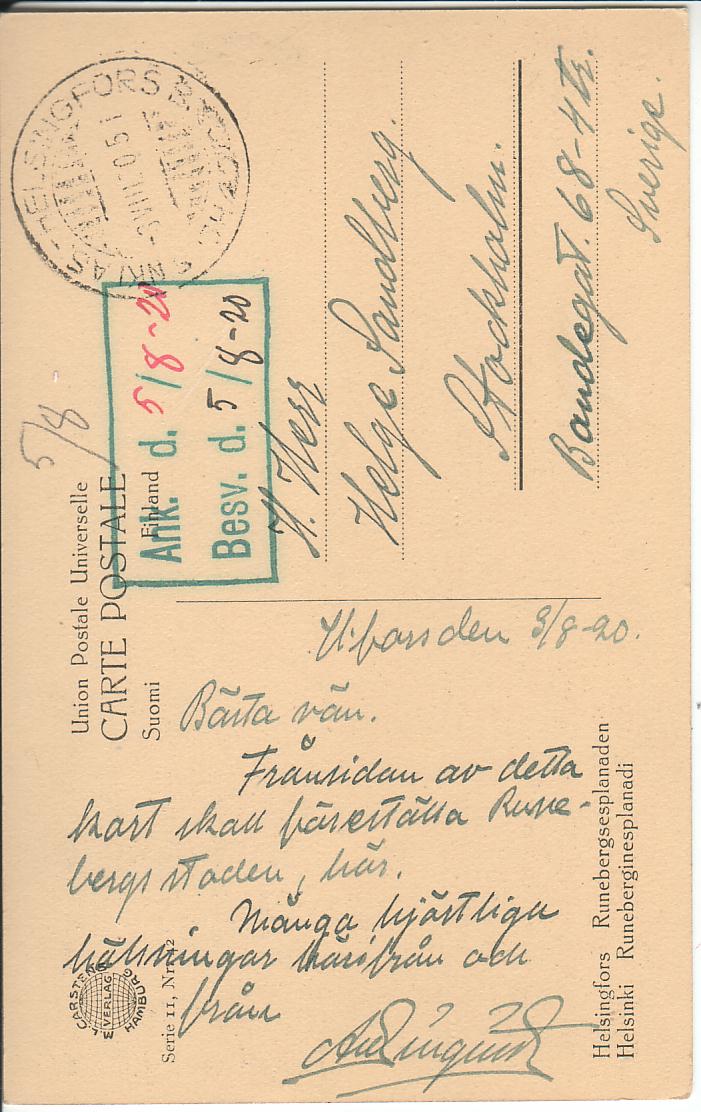 Union Postale Universelle
CARTE POSTALE
Suomi Finland
HELSINGFORS
-3.VIII.20.51
5/8
Ank. d. 5/8-20
Besv. d. 5/8-20
H. Herr
Helge Sandberg.
Stockholm.
Bondegat. 68-4 tr.
Sverige.
H:fors den 3/8-20.
Bästa vän.
Frånsidan av detta
kort skall föreställa Rune-
bergs staden, här.
Många hjärtliga
hälsningar härifrån och
från
CARSTENS
VERLAG
HAMBURG
Serie 11, Nr. 12
Helsingfors Runebergsesplanaden
Helsinki Runeberginesplanadi